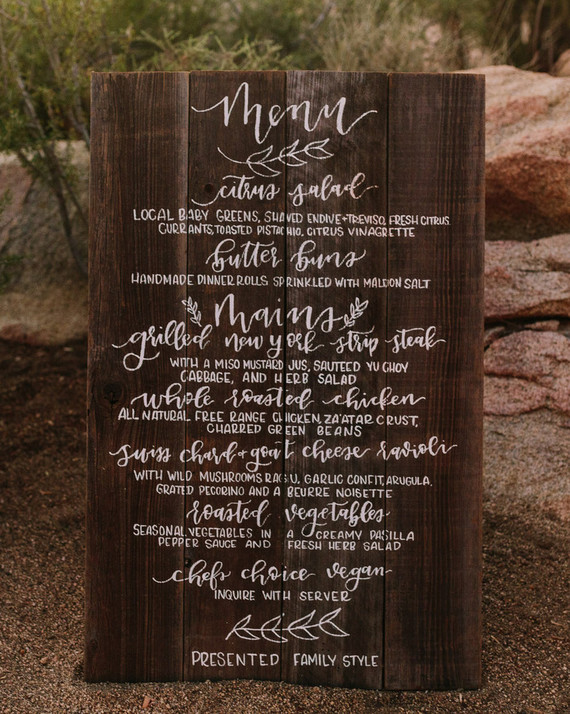 Menu
citrus salad
LOCAL BABY GREENS, SHAVED ENDIVE + TREVISO, FRESH CITRUS
CURRANTS, TOASTED PISTACHIO, CITRUS VINAGRETTE
butter buns
HANDMADE DINNER ROLLS SPRINKLED WITH MALDON SALT
Mains
grilled new york strip steak
WITH A MISO MUSTARD JUS, SAUTEED YU CHOY
CABBAGE, AND HERB SALAD
whole roasted chicken
ALL NATURAL FREE RANGE CHICKEN, ZA'ATAR CRUST,
CHARRED GREEN BEANS
swiss chard + goat cheese ravioli
WITH WILD MUSHROOMS RAGU, GARLIC CONFIT, ARUGULA,
GRATED PECORINO AND A BEURRE NOISETTE
roasted vegetables
SEASONAL VEGETABLES IN A CREAMY PASILLA
PEPPER SAUCE AND FRESH HERB SALAD
chefs choice vegan
INQUIRE WITH SERVER
PRESENTED FAMILY STYLE